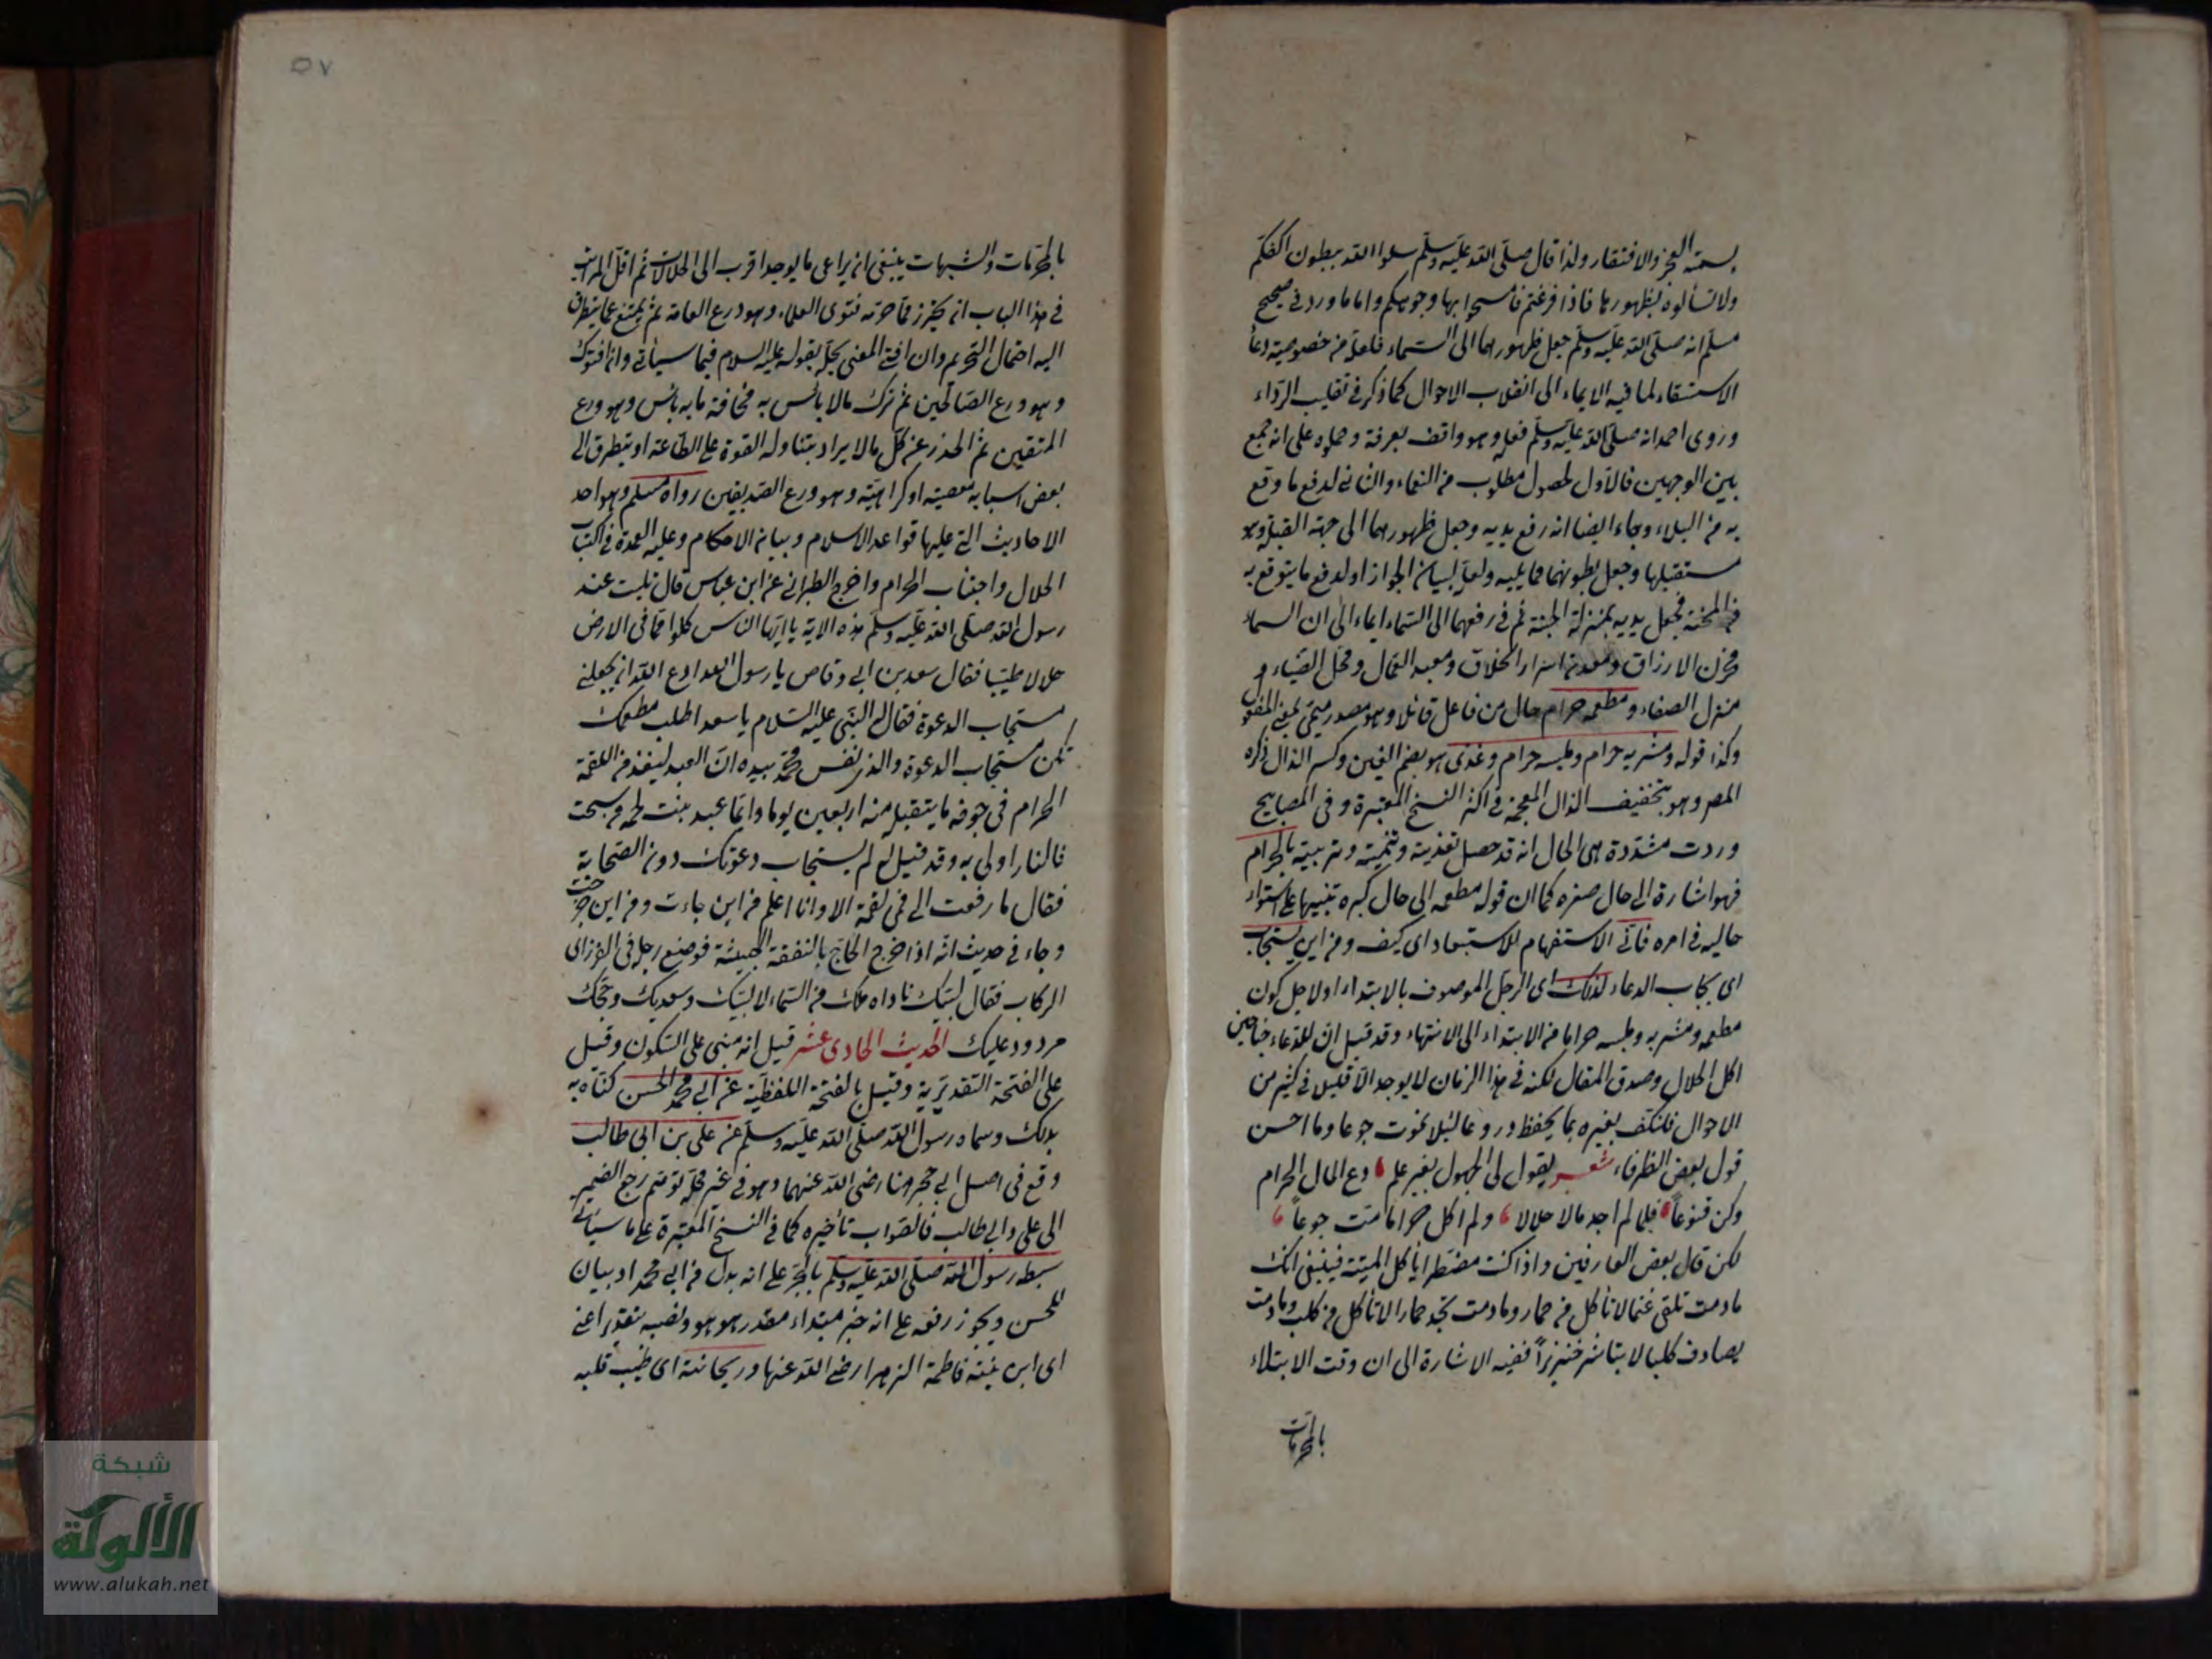 بسمة العجز والافتقار ولذا قال صلى الله عليه وسلم سلوا الله ببطون اكفكم
ولا تسألوه بظهورها فاذا فرغتم فامسحوا بها وجوهكم واما ما ورد في صحيح
مسلم انه صلى الله عليه وسلم جعل ظهورهما الى السماء فلعله من خصوصية دعاء
الاستسقاء لما فيه الايماء الى انقلاب الاحوال كما ذكر في تقليب الرداء
وروى احمد انه صلى الله عليه وسلم فعله وهو واقف بعرفة وحملوه على انه جمع
بين الوجهين فالاول لحصول مطلوب من النعماء والثاني لدفع ما وقع
به من البلاء وجاء ايضا انه رفع يديه وجعل ظهورهما الى جهة القبلة وهو
مستقبلها وجعل بطونهما مما يليه ولعله لبيان الجواز او لدفع ما يتوقع به
من المحنة فجعل يديه بمنزلة الجنة ثم في رفعهما الى السماء ايماء الى ان السماء
مخزن الارزاق ومعدن اسرار الخلاق ومعبد العمال ومحل الضياء و
منزل الصفاء ومطعمه حرام حال من فاعل قائلا وهو مصدر ميمي بمعنى المفعول
وكذا قوله ومشربه حرام وملبسه حرام وغذي هو بضم الغين وكسر الذال ذكره
المصر وهو بتخفيف الذال المعجمة في اكثر النسخ المعتبرة وفي المصابيح
وردت مشددة هي الحال انه قد حصل تغذيته وتنميته وتربيته بالحرام
فهو اشارة الى حال صغره كما ان قوله مطعمه الى حال كبره تنبيها على استواء
حاليه في امره فانى الاستفهام للاستبعاد اى كيف ومن اين يستجاب
اى يجاب الدعاء لذلك اى الرجل الموصوف بالابتداء او لاجل كون
مطعمه ومشربه وملبسه حراما من الابتداء الى الانتهاء وقد قيل ان للدعاء جناحين
اكل الحلال وصدق المقال لكنه في هذا الزمان لا يوجد الا قليل في كثير من
الاحوال فلنكتف بغيره بما يحفظ دروعا لئلا نموت جوعا وما احسن
قول بعض الظرفاء شعر يقول لى الجهول بغير علم دع المال الحرام
وكن قنوعا فلما لم اجد مالا حلالا ولم اكل حراما مت جوعا
لكن قال بعض العارفين واذا كنت مضطرا ياكل الميتة فينبغى انك
مادمت تلقى غنما لا تأكل من حمار ومادمت تجد حمارا لا تأكل من كلب ومادمت
يصادف كلبا لا يباشر خنزيرا ففيه الاشارة الى ان وقت الابتلاء
بالمحرمات
٥٧
بالمحرمات والشبهات ينبغى ان يراعى ما يوجد اقرب الى الحلالات ثم اقل المراتب
في هذا الباب ان يحترز مما حرته فتوى العلماء وهو ورع العامة ثم يمتنع عما يتطرق
اليه احتمال التحريم وان افتى المفتى بحله بقوله عليه السلام فيما سيأتي وان افتوك
وهو ورع الصالحين ثم ترك مالا بائس به مخافة ما به بائس وهو ورع
المتقين ثم الحذر عن كل مالا يراد بتناوله القوة على الطاعة او يتطرق الى
بعض اسبابه معصية او كراهية وهو ورع الصديقين رواه مسلم وهو احد
الاحاديث التي عليها قواعد الاسلام وبيان الاحكام وعليه العمدة في اكتساب
الحلال واجتناب الحرام واخرج الطبراني عن ابن عباس قال تليت عند
رسول الله صلى الله عليه وسلم هذه الآية يا ايها الناس كلوا مما في الارض
حلالا طيبا فقال سعد بن ابي وقاص يا رسول الله ادع الله ان يجعلني
مستجاب الدعوة فقال له النبي عليه السلام يا سعد اطلب مطعمك
تكن مستجاب الدعوة والذي نفس محمد بيده ان العبد ليقذف اللقمة
الحرام في جوفه ما يتقبل منه اربعين يوما وايما عبد نبت لحمه من سحت
فالنار اولى به وقد قيل له لم يستجاب دعوتك دون الصحابة
فقال ما رفعت الى فمى لقمة الا وانا اعلم من اين جاءت ومن اين خرجت
وجاء في حديث انه اذا خرج الحاج بالنفقة الخبيثة فوضع رجله في الغرز اى
الركاب فقال لبيك ناداه ملك من السماء لا لبيك وسعديك وحجك
مردود عليك الحديث الحادى عشر قيل انه مبنى على السكون وقيل
على الفتحة التقديرية وقيل بالفتحة اللفظية عن ابي محمد الحسن كناه به
بذلك وسماه رسول الله صلى الله عليه وسلم عن على بن ابى طالب
وقع في اصل ابن حجر هنا رضى الله عنهما وهو في غير محله توهم رجع الضمير
الى على وابى طالب فالصواب تأخيره كما في النسخ المعتبرة على ما سيأتي
سبط رسول الله صلى الله عليه وسلم بالجر على انه بدل من ابى محمد او بيان
للحسن ويجوز رفعه على انه خبر مبتداء مقدر هو هو ونصبه بتقدير اعنى
اى ابن بنته فاطمة الزهرا رضى الله عنها وريحانته اى طيب قلبه
شبكة
الألوكة
www.alukah.net